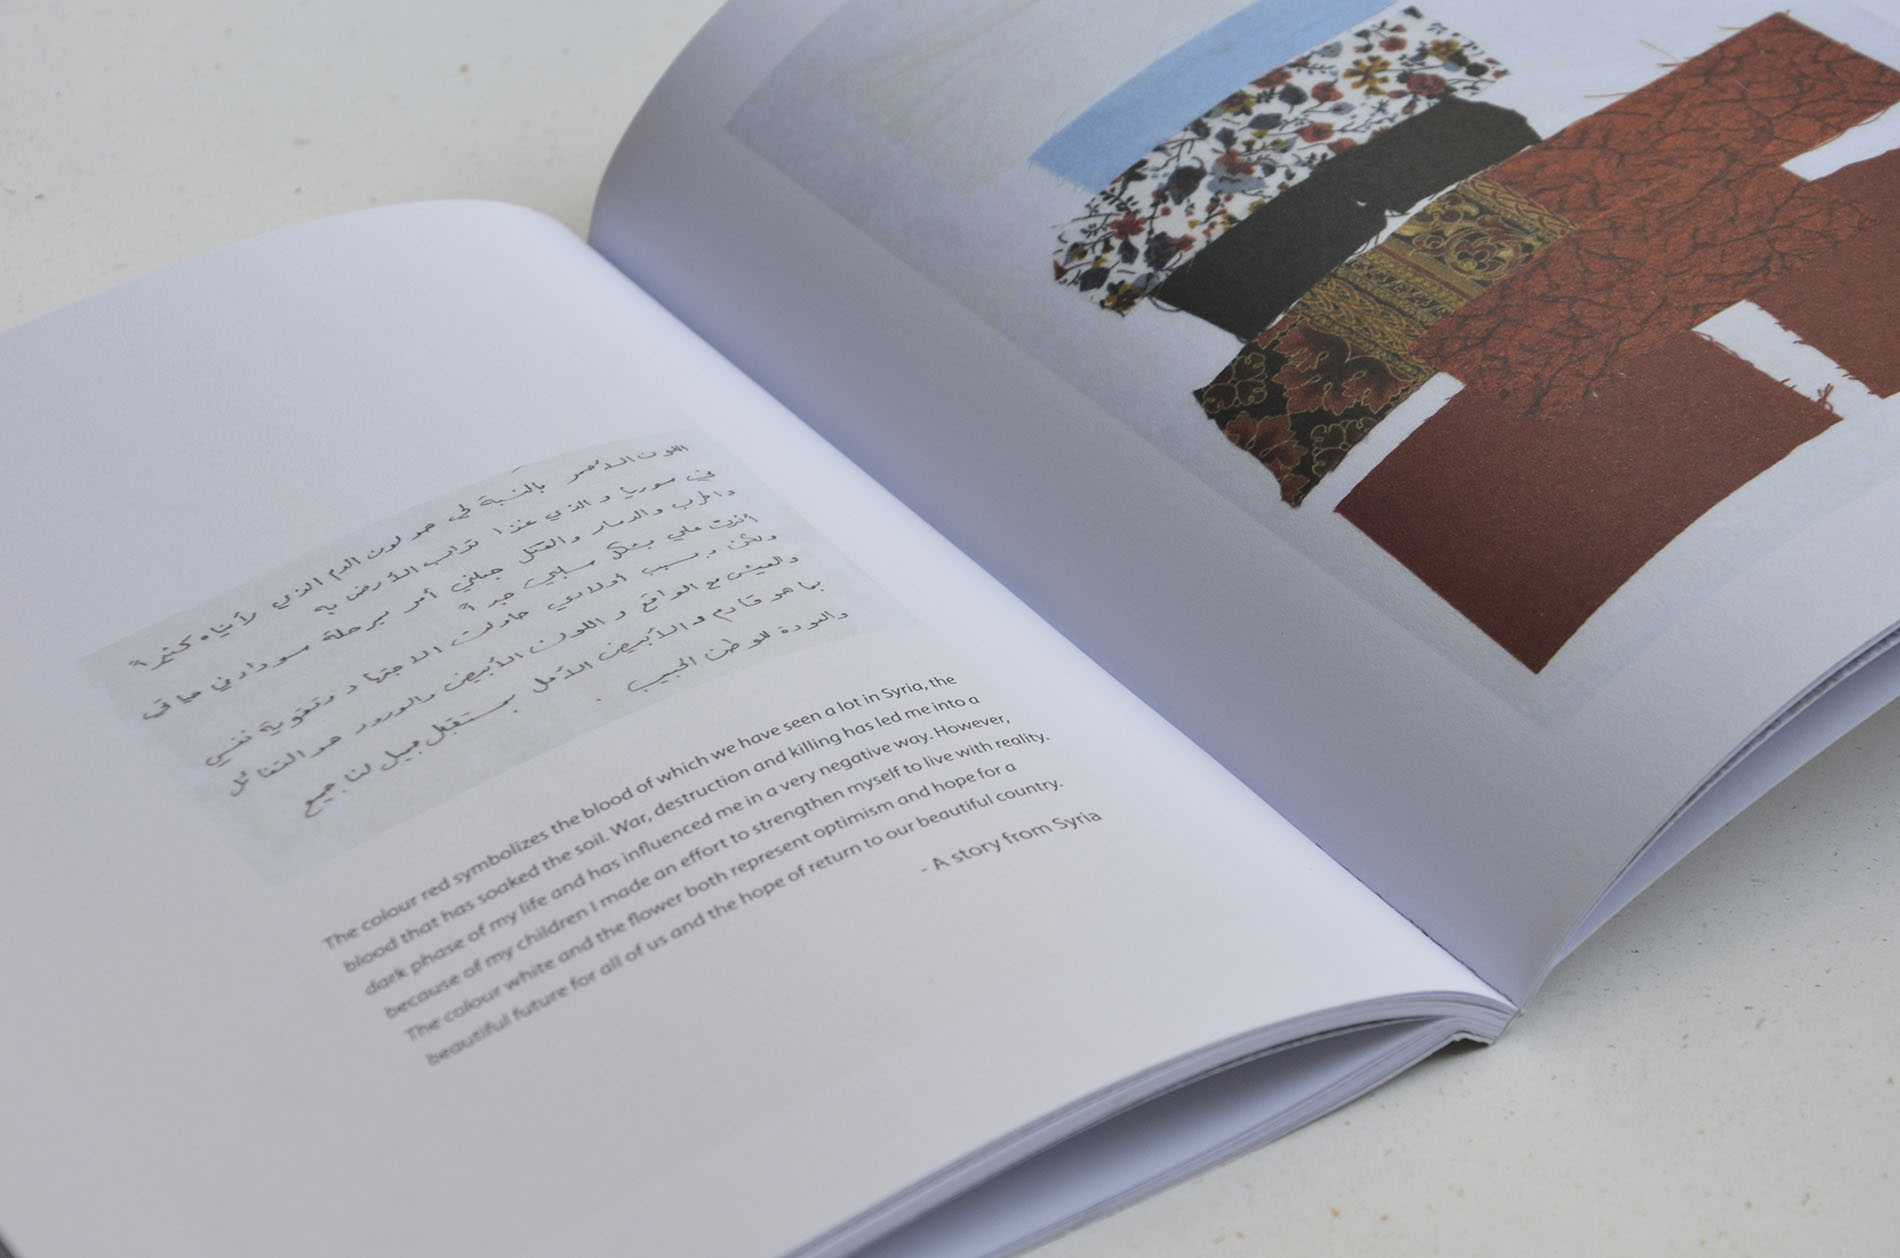 اللون الأحمر بالنسبة لي هو لون الدم الذي رأيناه كثيراً
في سوريا و الذي غزا تراب الأرض به
والحرب والدمار والقتل جعلني أمر بمرحلة سوداء في حياتي
أثرت علي بشكل سلبي جداً
ولكن وبسبب أولادي حاولت الاجتهاد وتقوية نفسي
والعيش مع الواقع و اللون الأبيض والورود هو التفائل
بما هو قادم و الأبيض الأمل بمستقبل جميل لنا جميع
والعودة للوطن الحبيب .
The colour red symbolizes the blood of which we have seen a lot in Syria, the
blood that has soaked the soil. War, destruction and killing has led me into a
dark phase of my life and has influenced me in a very negative way. However,
because of my children I made an effort to strengthen myself to live with reality.
The colour white and the flower both represent optimism and hope for a
beautiful future for all of us and the hope of return to our beautiful country.
- A story from Syria